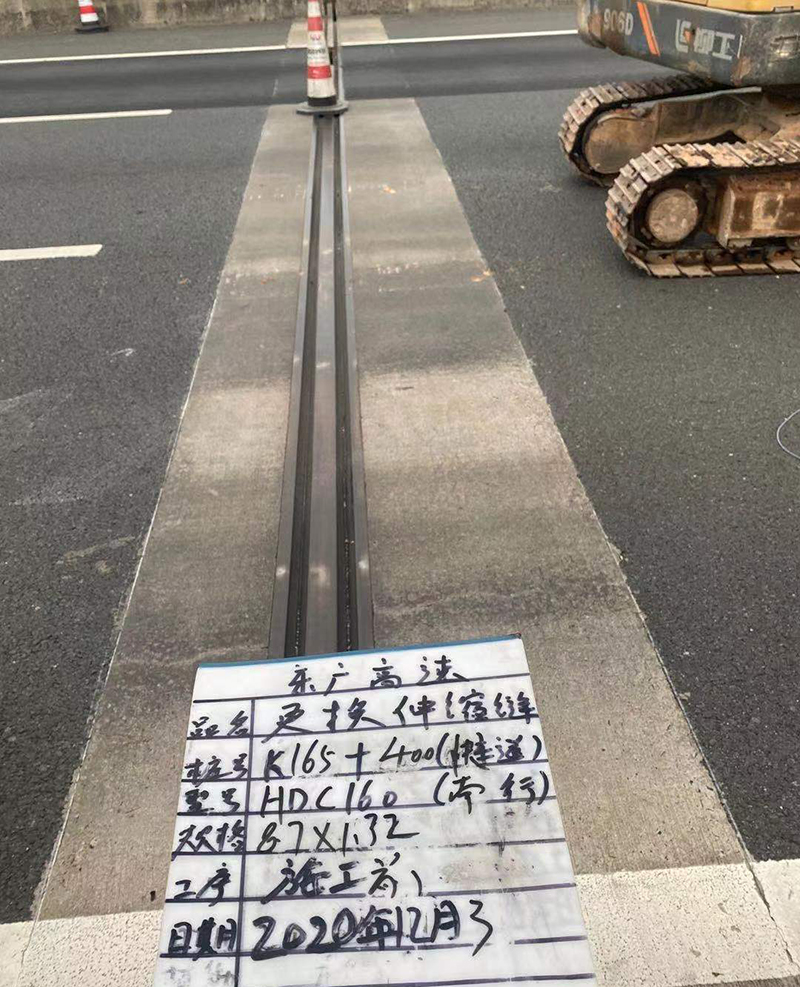 906D
柳工
京广高速
品名 更换伸缩缝
桩号 K165+400(快道)
型号 HDC160 (南行)
规格 8.7X1.32
工序 施工前
日期 2020年12月3